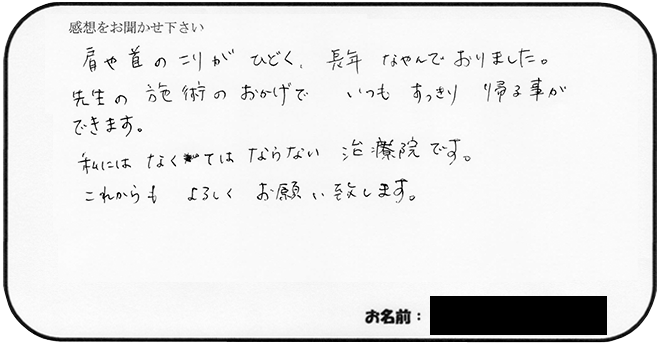 感想をお聞かせ下さい
肩や首のこりがひどく、長年なやんでおりました。
先生の施術のおかげで いつもすっきり帰る事が
できます。
私にはなくてはならない治療院です。
これからもよろしくお願い致します。
お名前：